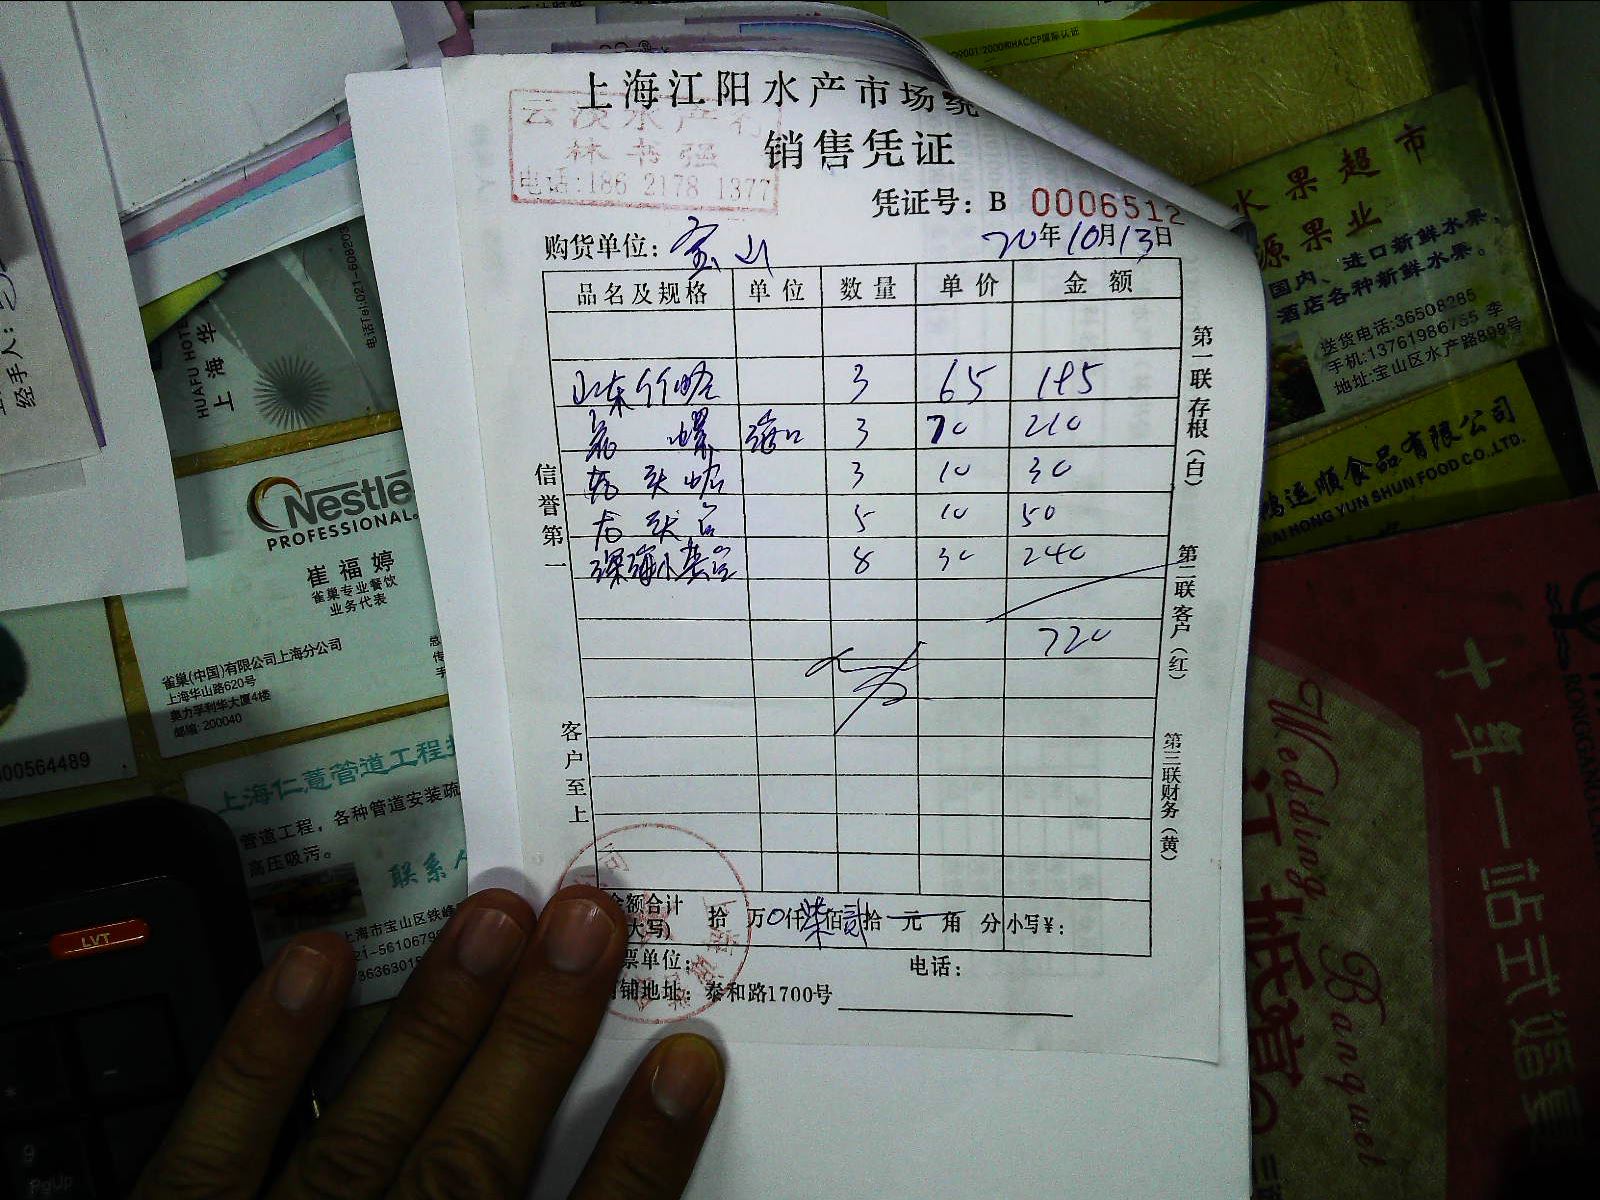 上海江阳水产市场统
销售凭证
林书强
电话:186 2178 1377
凭证号: B 0006512
购货单位: 宝山
20年10月13日
品名及规格 单位 数量 单价 金额
3 65 195
海口 3 70 210
3 10 30
5 10 50
深海小黄鱼 8 30 240
720
信誉第一
客户至上
第一联存根(白)
第二联客户(红)
第三联财务(黄)
金额合计
大写) 拾 万0仟柒佰贰拾 元 角 分 小写¥:
票单位: 电话:
铺地址: 泰和路1700号
经手人:
HUAFU HOTE
上海华
电话Tel:021-608203
Nestlé
PROFESSIONAL.
崔福婷
雀巢专业餐饮
业务代表
雀巢(中国)有限公司上海分公司
上海华山路620号
奥力孚利华大厦4楼
邮编: 200040
00564489
上海仁薏管道工程
管道工程, 各种管道安装疏
高压吸污。
联系人
上海市宝山区铁峰
21-5610679
3636301
LVT
9
PgUp
9001/2000和HACCP国际认证
水果超市
源果业
国内、进口新鲜水果,
酒店各种新鲜水果。
送货电话:36508285
手机:13761986755 李
地址:宝山区水产路898号
鸿运顺食品有限公司
HAI HONG YUN SHUN FOOD CO.,LTD.
Wedding Banquet
十年一站式婚宴
RONGGANG